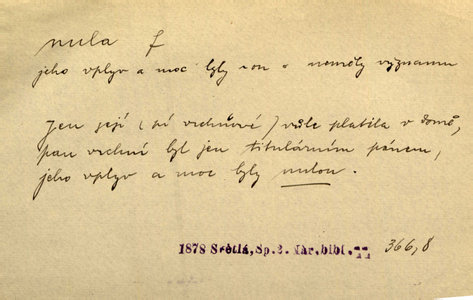 nula f
jeho vplyv a moc byly neměly významu
Jen její (pí vrchnové) vůle platila v domě,
pan vrchní byl jen titulárním pánem,
jeho vplyv a moc byly nulou.
1878 Světlá, Sp. 2. Nár. bibl. 366,8